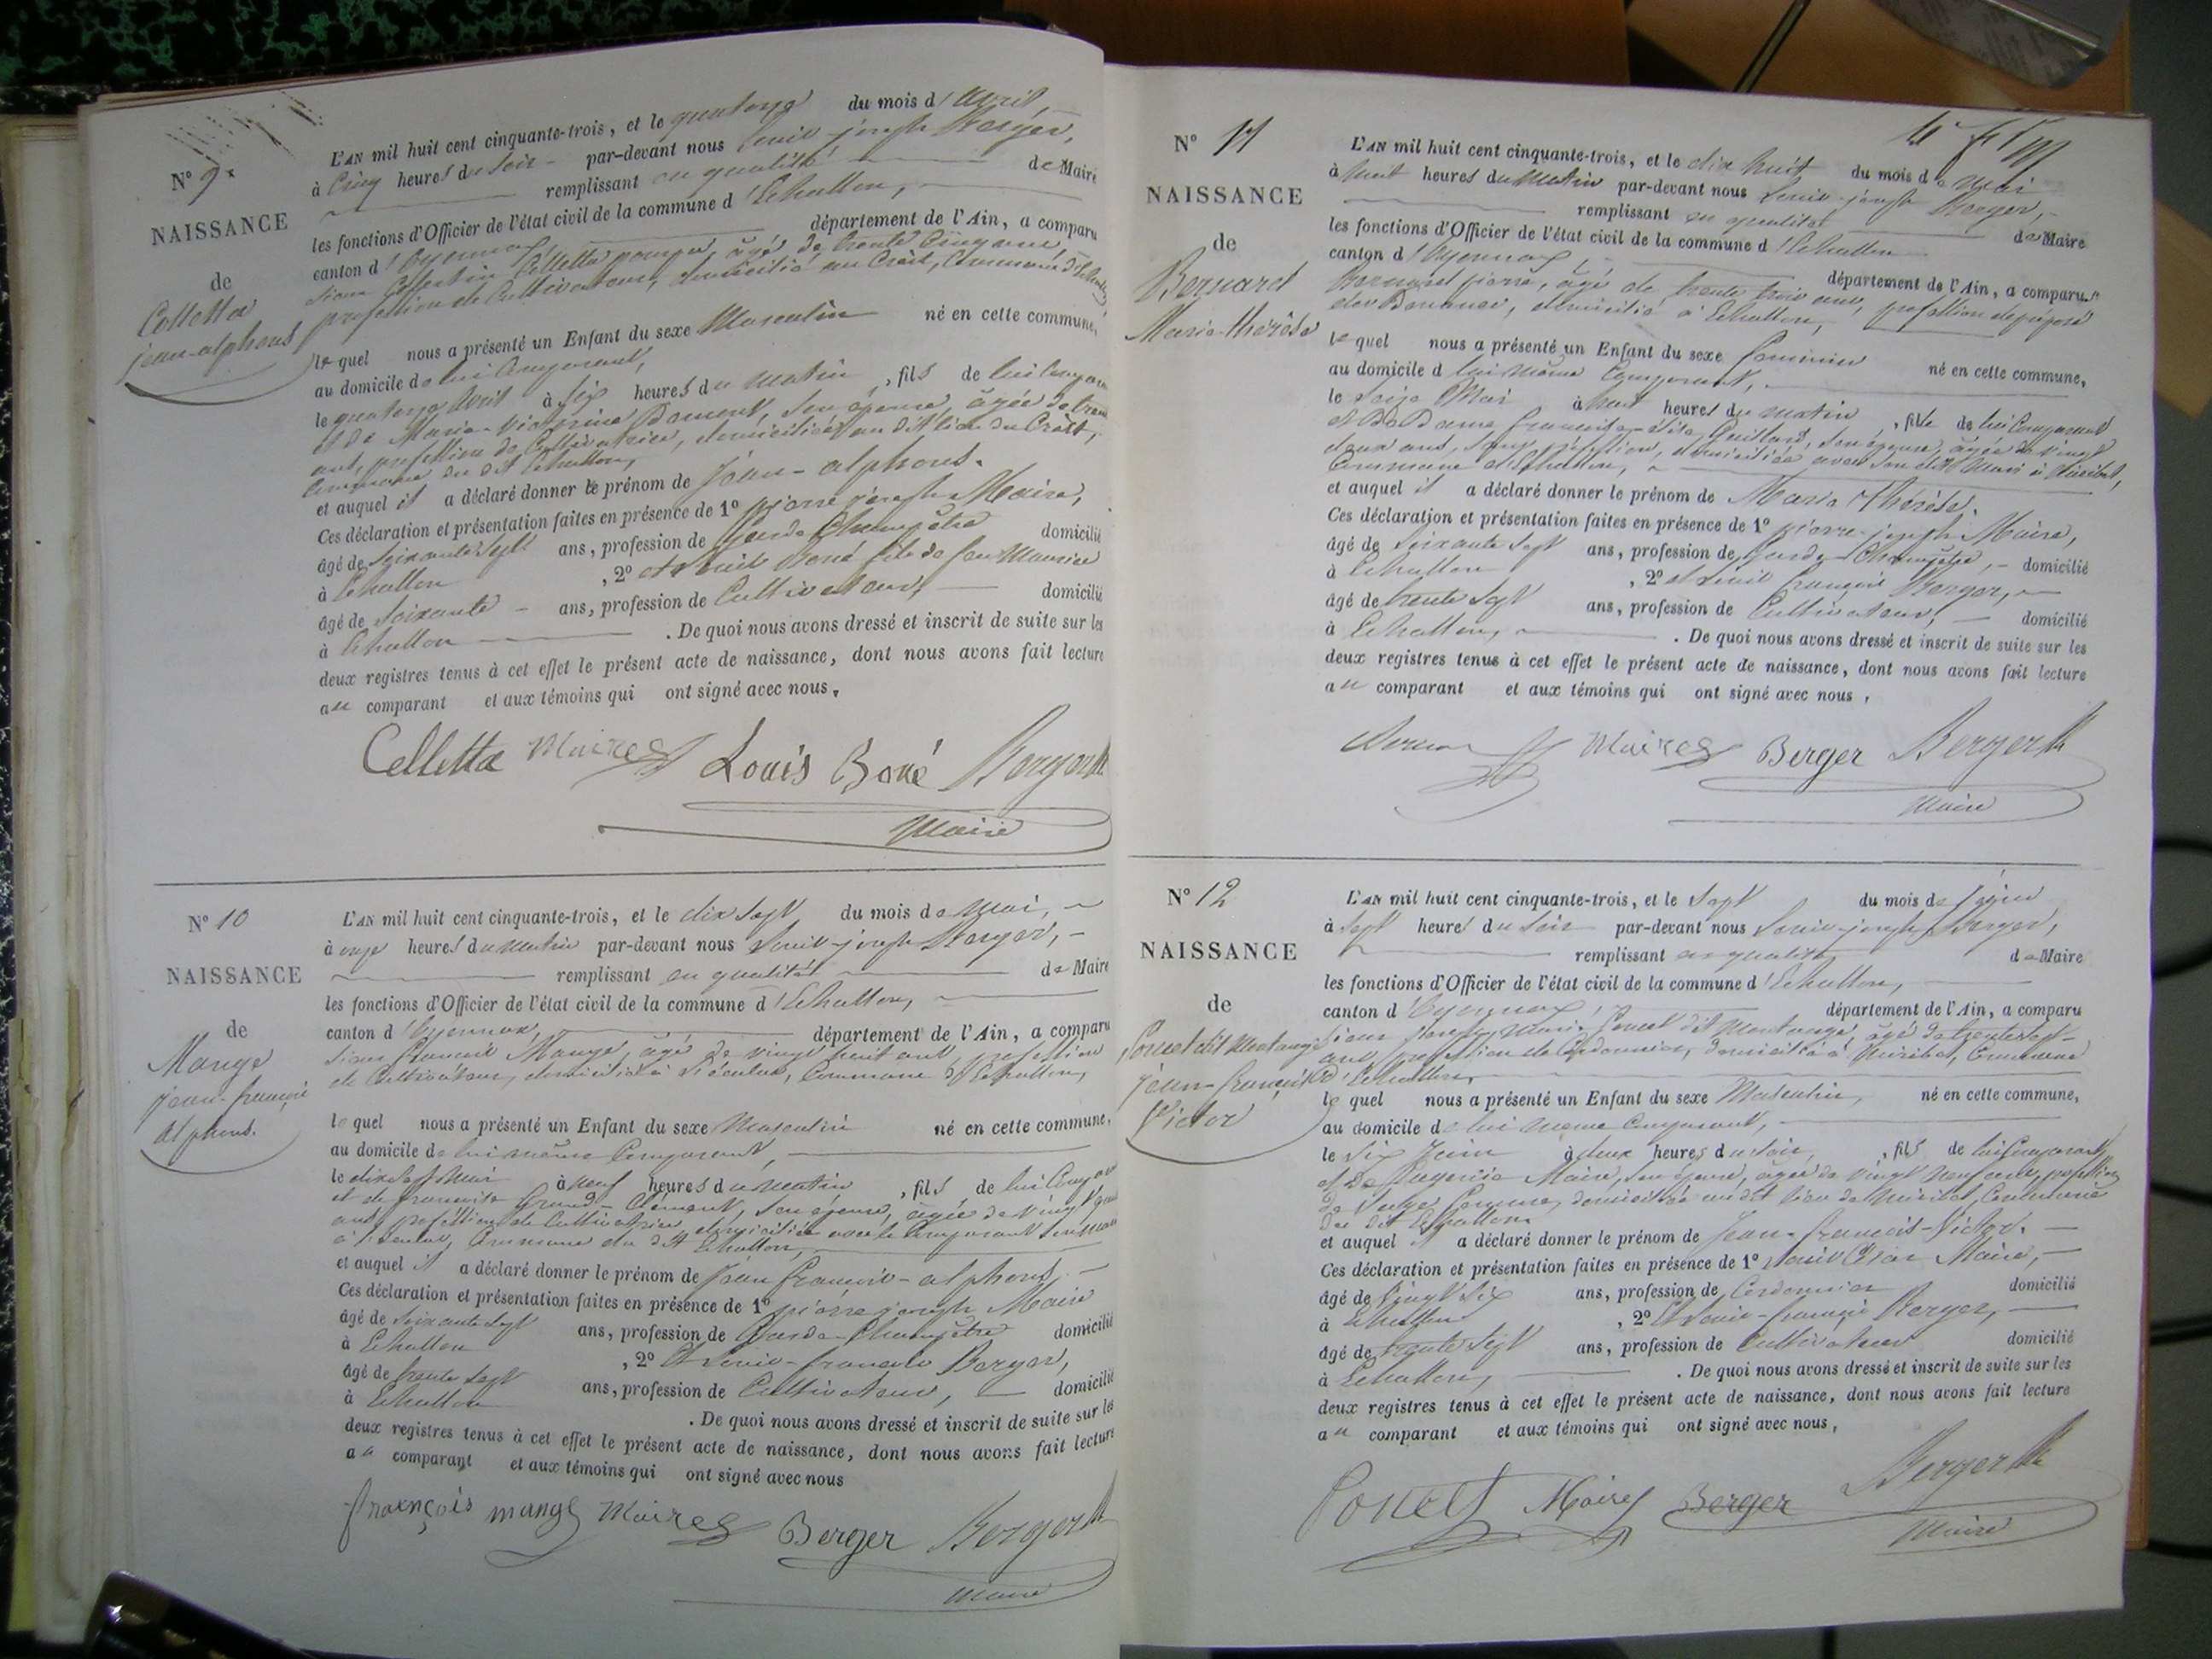 N° 9.
NAISSANCE
de
Colletta
jean-alphons
L'AN mil huit cent cinquante-trois, et le quatorze du mois d'avril,
à Cinq heures du Soir par-devant nous Louis-joseph Berger,
remplissant en qualité de Maire
les fonctions d'Officier de l'état civil de la commune d'Echallon,
canton d'Oyonnax, département de l'Ain, a comparu
âgé de trente Cinq ans,
profession de Cultivateur, domicilié au Crêt, Commune d'Echallon,
lequel nous a présenté un Enfant du sexe Masculin né en cette commune,
au domicile de lui Comparant,
le quatorze Avril à Six heures du matin, fils de lui Comparant
et de Marie-Victorine son épouse, âgée de
ans, profession de Cultivatrice, domiciliée au dit lieu du Crêt,
Commune du dit Echallon,
et auquel il a déclaré donner le prénom de Jean-alphons.
Ces déclaration et présentation faites en présence de 1° pierre joseph Maire,
âgé de Soixante Sept ans, profession de Garde Champêtre domicilié
à Echallon, 2° et Louis Boné fils de feu Maurice
âgé de Soixante ans, profession de Cultivateur, domicilié
à Echallon. De quoi nous avons dressé et inscrit de suite sur les
deux registres tenus à cet effet le présent acte de naissance, dont nous avons fait lecture
au comparant et aux témoins qui ont signé avec nous,
Celletta Maire Louis Boné Berger
Maire
N° 10
NAISSANCE
de
Mange
jean-françois
alphons.
L'AN mil huit cent cinquante-trois, et le dix Sept du mois de Mai,
à onze heures du Matin par-devant nous Louis-joseph Berger,
remplissant en qualité de Maire
les fonctions d'Officier de l'état civil de la commune d'Echallon,
canton d'Oyonnax, département de l'Ain, a comparu
Sieur François Mange, âgé de vingt huit ans, profession
de Cultivateur, domicilié à Commune d'Echallon,
lequel nous a présenté un Enfant du sexe Masculin né en cette commune,
au domicile de lui même Comparant,
le dix Sept Mai à neuf heures du Matin, fils de lui Comparant
et de françoise Grand-Clément, son épouse, âgée de vingt
ans, profession de Cultivatrice, domiciliée avec le Comparant
Commune du dit Echallon,
et auquel il a déclaré donner le prénom de Jean françois-alphons.
Ces déclaration et présentation faites en présence de 1° pierre joseph Maire
âgé de Soixante Sept ans, profession de Garde-Champêtre domicilié
à Echallon, 2° et Louis-françois Berger,
âgé de trente Sept ans, profession de Cultivateur, domicilié
à Echallon. De quoi nous avons dressé et inscrit de suite sur les
deux registres tenus à cet effet le présent acte de naissance, dont nous avons fait lecture
au comparant et aux témoins qui ont signé avec nous
françois mange Maire Berger Berger
Maire
N° 11
NAISSANCE
de
Bernard
Marie-thérèse
L'AN mil huit cent cinquante-trois, et le dix huit du mois de Mai
à huit heures du Matin par-devant nous Louis-joseph Berger,
remplissant en qualité de Maire
les fonctions d'Officier de l'état civil de la commune d'Echallon
canton d'Oyonnax, département de l'Ain, a comparu
Bernard pierre, âgé de trente trois ans, profession de préposé
des Douanes, domicilié à Echallon,
lequel nous a présenté un Enfant du sexe féminin né en cette commune,
au domicile d lui même Comparant,
le Seize Mai à huit heures du matin, fille de lui Comparant
et De Dame françoise Guillard, son épouse, âgée de vingt
deux ans, Sans profession, domiciliée avec son dit Mari à
Commune d'Echallon,
et auquel il a déclaré donner le prénom de Marie Thérèse.
Ces déclaration et présentation faites en présence de 1° pierre-joseph Maire,
âgé de Soixante Sept ans, profession de Garde-Champêtre, domicilié
à Echallon, 2° et Louis françois Berger,
âgé de trente Sept ans, profession de Cultivateur, domicilié
à Echallon,. De quoi nous avons dressé et inscrit de suite sur les
deux registres tenus à cet effet le présent acte de naissance, dont nous avons fait lecture
au comparant et aux témoins qui ont signé avec nous,
Maire Berger Berger
Maire
N° 12
NAISSANCE
de
Poncet dit Montange
jean-françois
Victor
L'AN mil huit cent cinquante-trois, et le Sept du mois de juin
à Sept heures du Soir par-devant nous Louis-joseph Berger,
remplissant en qualité de Maire
les fonctions d'Officier de l'état civil de la commune d'Echallon,
canton d'Oyonnax, département de l'Ain, a comparu
Sieur Joseph Marie Poncet dit Montange, âgé de trente Sept
ans, profession de Cordonnier, domicilié à Miribel, Commune
d'Echallon,
lequel nous a présenté un Enfant du sexe Masculin, né en cette commune,
au domicile de lui même Comparant,
le Six Juin à deux heures du Soir, fils de lui Comparant
et De Maire, son épouse, âgée de vingt neuf ans, profession
de Sage femme, domiciliée au dit lieu de Miribel, Commune
du dit Echallon
et auquel il a déclaré donner le prénom de Jean-françois-Victor.
Ces déclaration et présentation faites en présence de 1° Louis César Maire,
âgé de vingt Six ans, profession de Cordonnier domicilié
à Echallon, 2° et Louis-françois Berger,
âgé de trente Sept ans, profession de Cultivateur domicilié
à Echallon,. De quoi nous avons dressé et inscrit de suite sur les
deux registres tenus à cet effet le présent acte de naissance, dont nous avons fait lecture
au comparant et aux témoins qui ont signé avec nous,
Poncet Maire Berger Berger
Maire